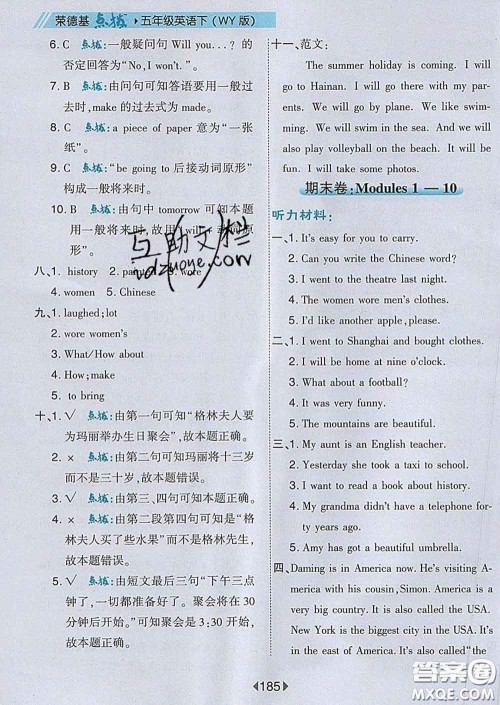 荣德基 点拨 ▸五年级英语下（WY 版）
6. C 点拨：一般疑问句 Will you…? 的
否定回答为“No, I won't.”。
7. B 点拨：由问句可知答语要用一般过
去时, make 的过去式为 made。
8. C 点拨：a piece of paper 意为“一张
纸”。
9. C 点拨：“be going to 后接动词原形”
构成一般将来时。
10. B 点拨：由句中 tomorrow 可知本题
用一般将来时, 故用
形”。
八、1. history 2.
4. women 5. Chinese
九、1. laughed; lot
2. wore women's
3. What/How about
4. How; make
5. to bring
十、1. √ 点拨：由第一句可知“格林夫人要
为玛丽举办生日聚会”, 故本题正确。
2. × 点拨：由第二句可知玛丽将满十三岁
而不是三十岁, 故本题错误。
3. √ 点拨：由第三、四句可知本题正确。
4. × 点拨：由第二段第四句可知是“格
林夫人买了些水果”而不是格林先生,
故本题错误。
5. √ 点拨：由短文最后三句“下午三点
钟了, 一切都准备好了。聚会将在 30
分钟后开始。”可知聚会是 3:30 开始,
故本题正确。
十一、范文：
The summer holiday is coming. I will
go to Hainan. I will go there with my par-
ents. We will go by plane. We like swim-
ming. We will swim in the sea. And we will
also play volleyball on the beach. We will
have fun. I will take some photos.
期末卷：Modules 1 — 10
听力材料：
一、1. It's easy for you to carry.
2. Can you write the Chinese word?
3. I went to the theatre last night.
4. The women wore men's clothes.
5. I'd like another apple, please.
二、1. I went to Shanghai and bought clothes.
2. I will be home at nine o'clock.
3. What about a football?
4. It was very funny.
5. The mountains are beautiful.
三、1. My aunt is an English teacher.
2. Yesterday she took a taxi to school.
3. She made the clothes.
4. My grandma didn't have a telephone for-
ty years ago.
5. Amy has got a beautiful umbrella.
四、Daming is in America now. He's visiting
America with his cousin, Simon. America is a
very big country. It is also called the USA.
New York is the biggest city in the USA. It
is in the east of America. It is also called the
◂185▸
互助文栏
vdzuoye.com
答案圈
MXQE.COM